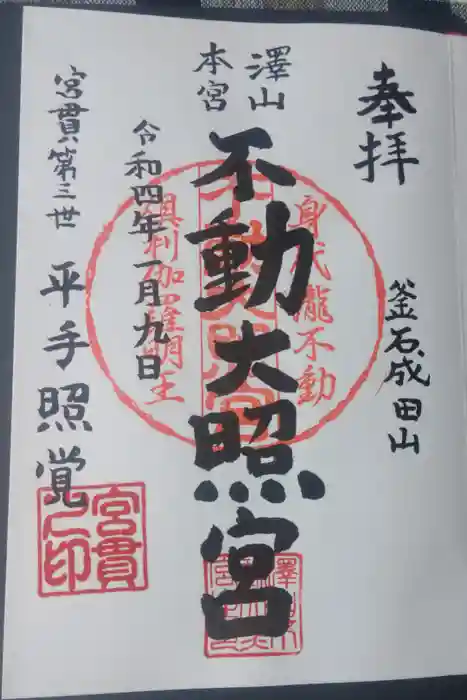 奉拝
釜石成田山
澤山
本宮
不動大照宮
身代瀧不動
倶利伽羅明王
令和四年一月九日
宮貫第三世 平手照覚
宮貫
之印